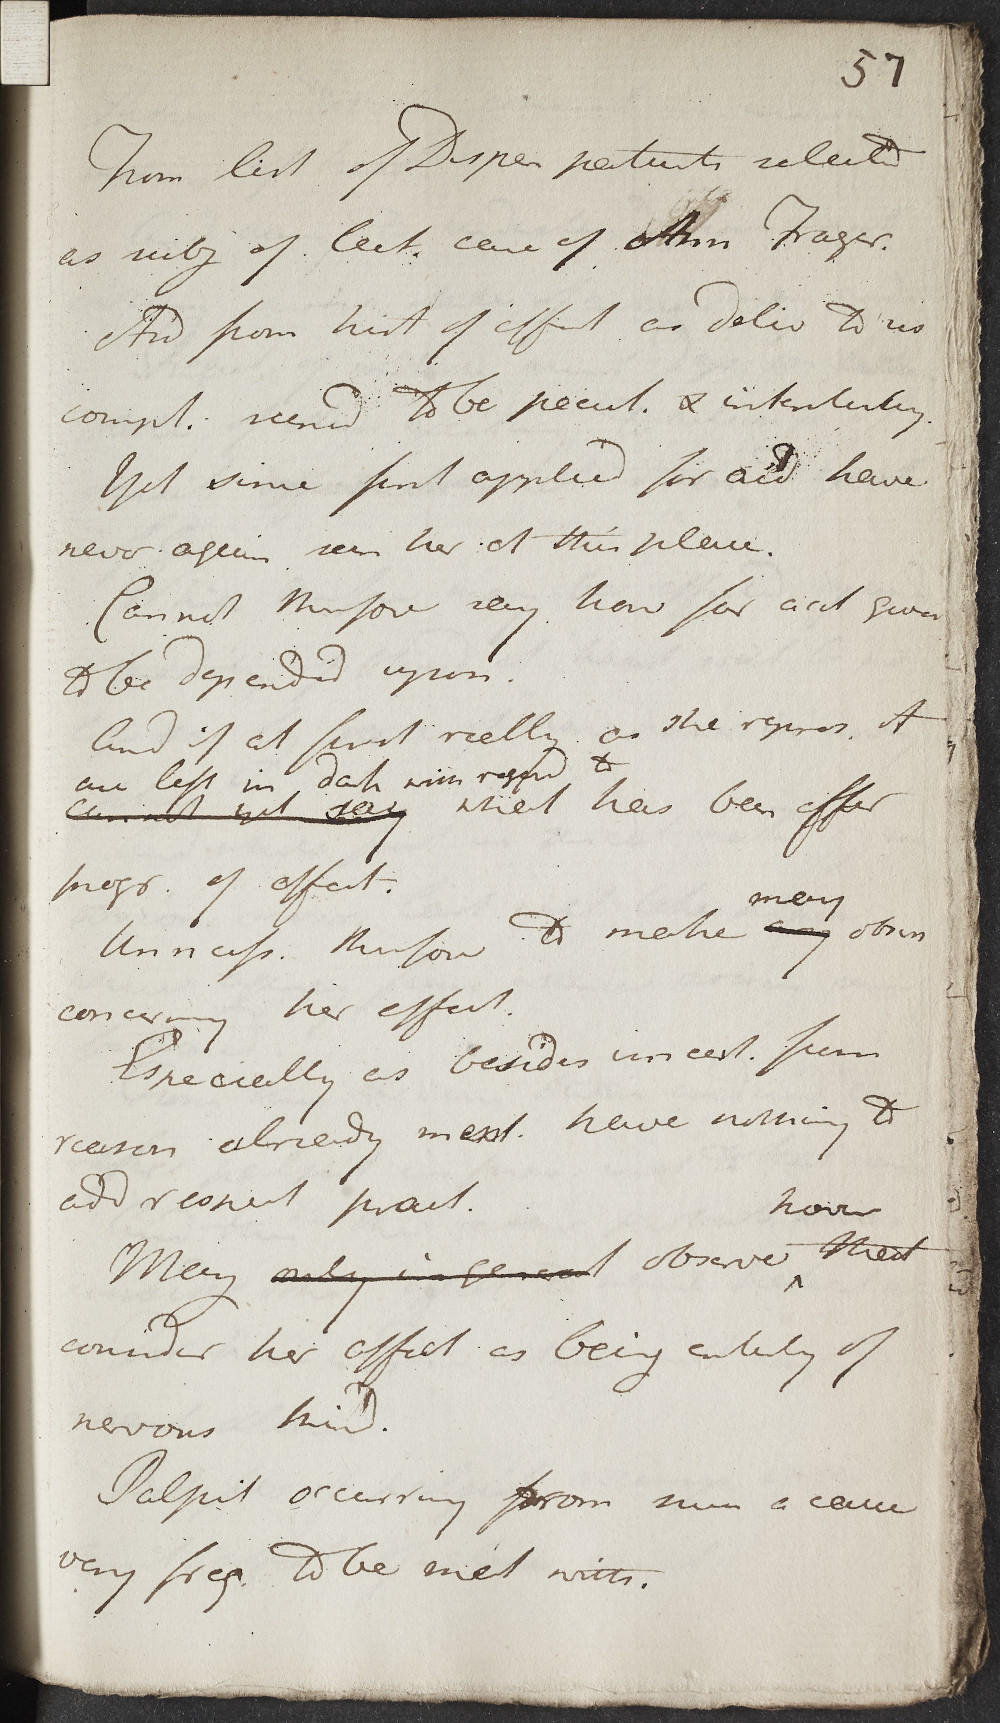 57
From list of Dispen patients selected
as subj of lect. case of Ann Frazer.
And from hist of affect as deliv to us
compl. seemd to be pecul. & interesting.
Yet since first applied for aid have
never again seen her at this place.
Cannot therefore say how far acct given
to be depended upon.
And if at first really as she repres. it
are left in dark with regard to
cannot yet say what has been after
progr. of affect.
Unnecess. therefore to make many
any obsns
concerning her affect.
Especially as besides uncert. from
reason already ment. have nothing to
add respect pract.
May only in general observe howr that
consider her affect as being entirely of
nervous kind.
Palpit occurring from such a cause
very freq. to be met with.